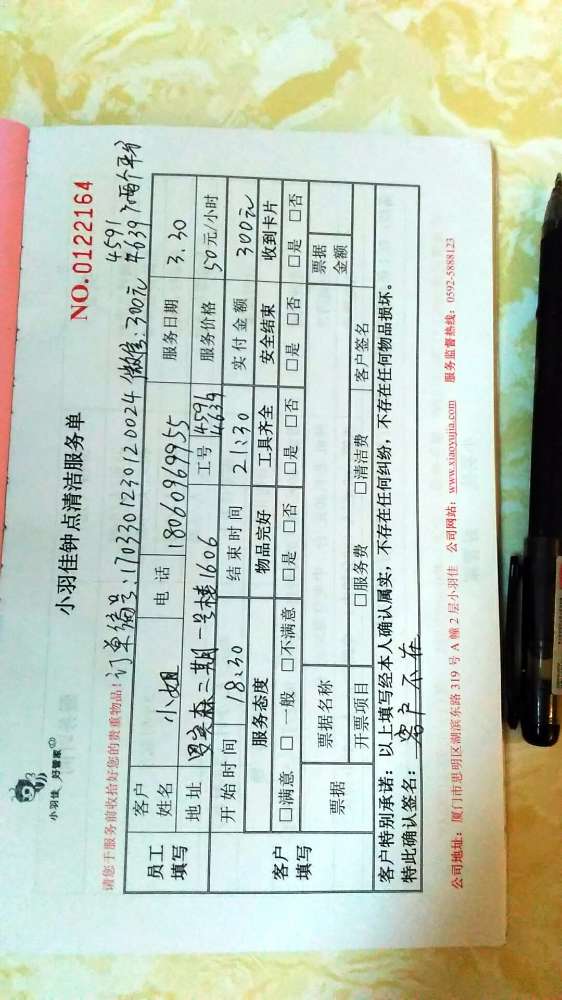 小羽佳 好管家
小羽佳钟点清洁服务单
NO.0122164
请您于服务前收拾好您的贵重物品!
订单编号:170330123012 0024 微信:300元 4591 4639 两个平分
员工填写 客户姓名 小姐 电话 18060969955 服务日期 3.30
地址 三期一号楼1606 工号 4591 4639 服务价格 50元/小时
客户填写 开始时间 18:30 结束时间 21:30 实付金额 300元
服务态度 物品完好 工具齐全 安全结束 收到卡片
□满意 □一般 □不满意 □是 □否 □是 □否 □是 □否 □是 □否
票据 票据名称 票据金额
开票项目 □服务费 □清洁费 客户签名
客户特别承诺:以上填写经本人确认属实,不存在任何纠纷,不存在任何物品损坏。
特此确认签名:客户不在
公司地址:厦门市思明区湖滨东路319号A幢2层小羽佳 公司网站:www.xiaoyujia.com 服务监督热线:0592-5888123